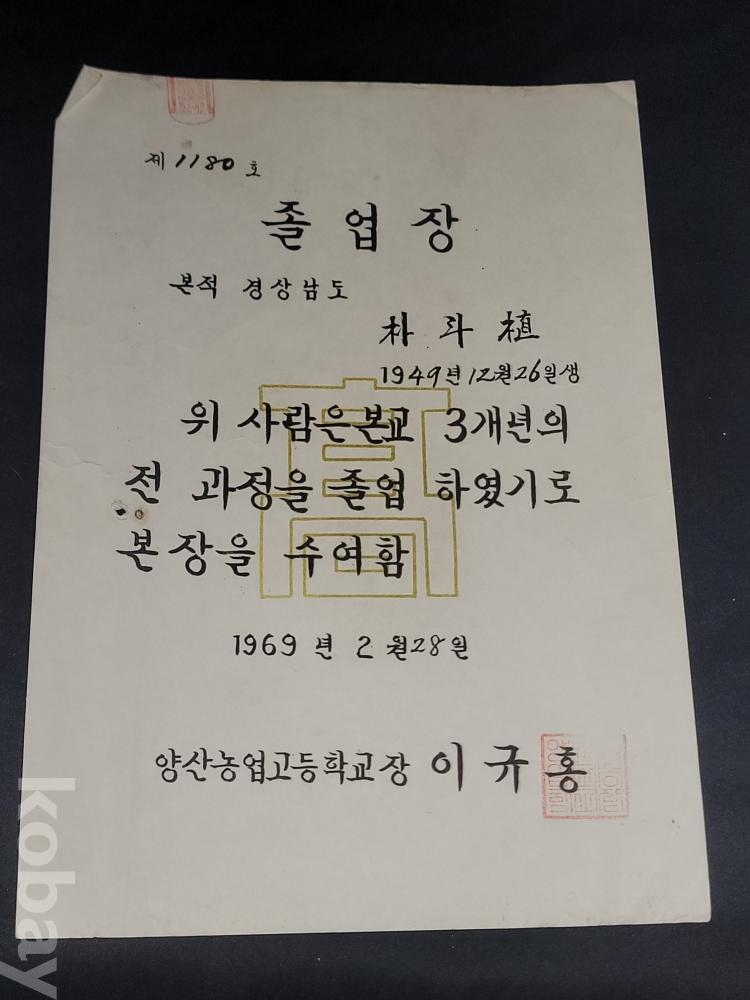 제 1180 호
졸업장
본적 경상남도
朴 斗 植
1949년 12월 26일생
위 사람은 본교 3개년의
전 과정을 졸업 하였기로
본장을 수여함
1969 년 2 월 28 일
양산농업고등학교장 이규홍
kobay